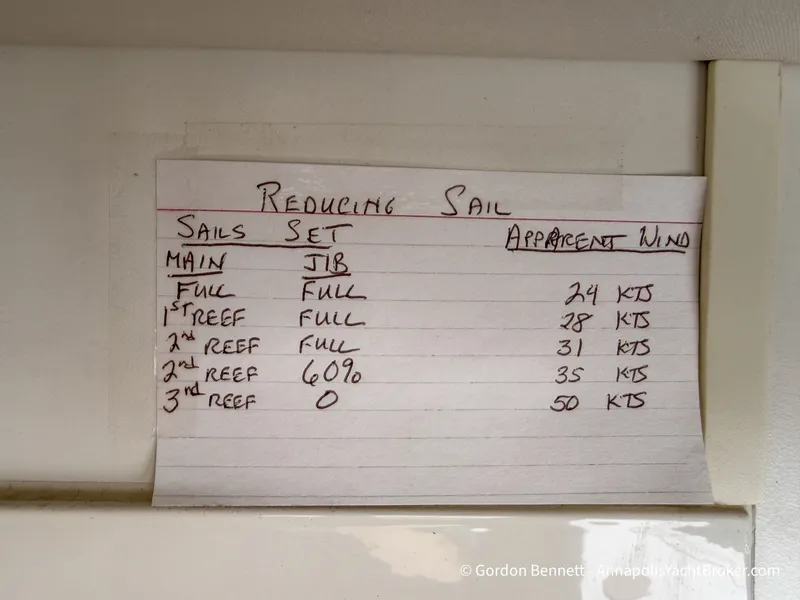 REDUCING SAIL
SAILS SET APPARENT WIND
MAIN JIB
FULL FULL 24 KTS
1ST REEF FULL 28 KTS
2nd REEF FULL 31 KTS
2nd REEF 60% 35 KTS
3nd REEF 0 50 KTS
© Gordon Bennett - AnnapolisYachtBroker.com